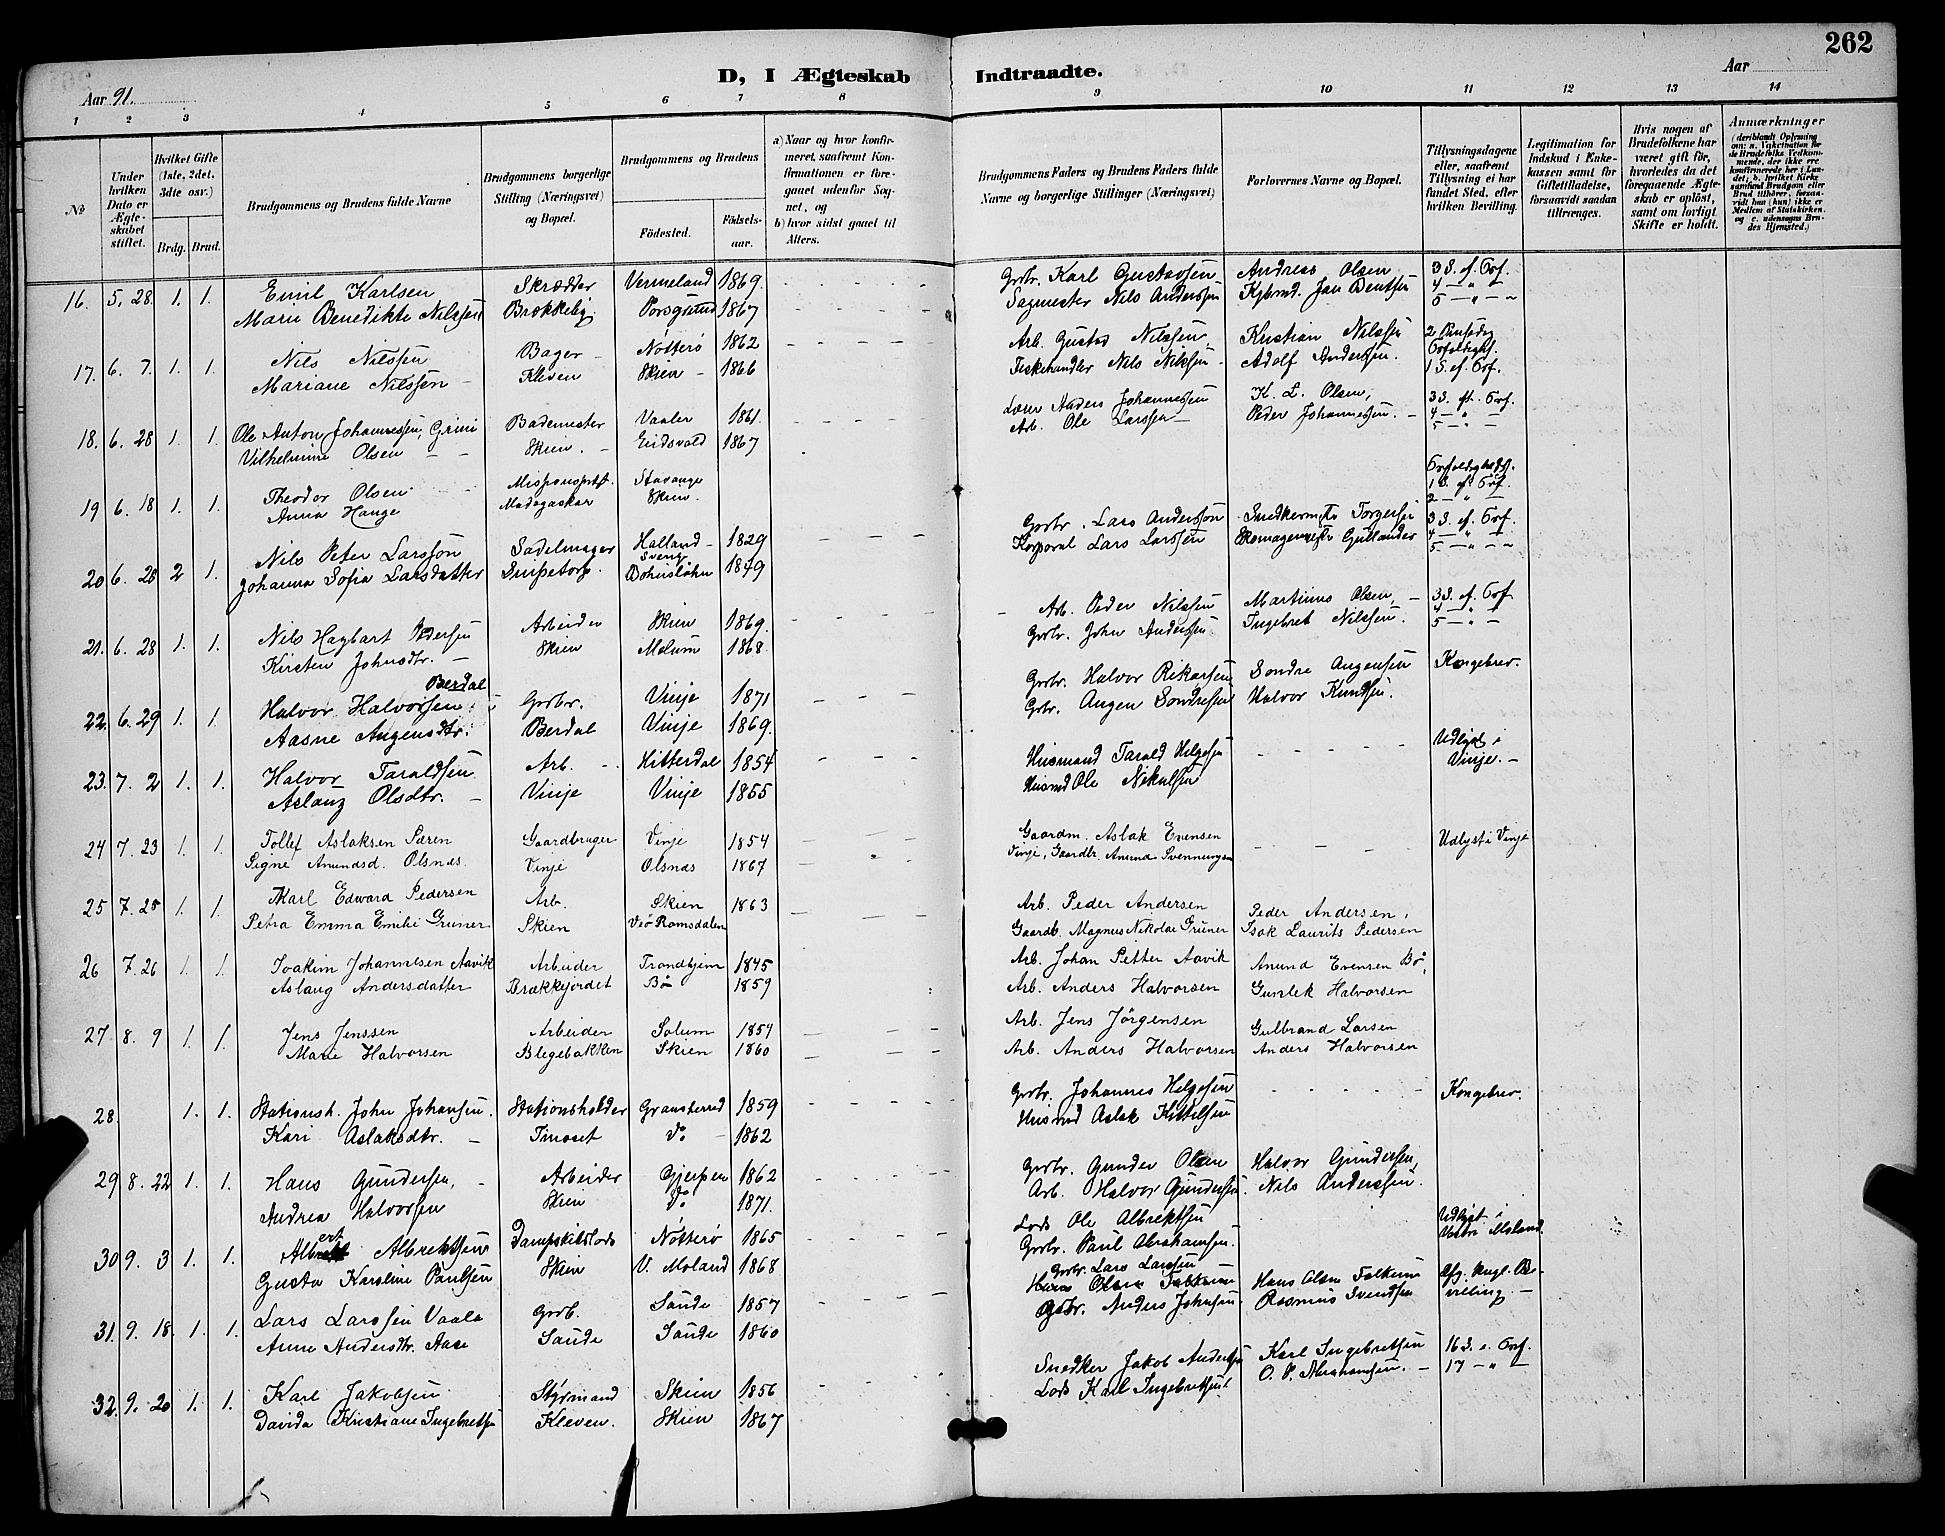 262
D, I Ægteskab Indtraadte.
Aar 91.
Aar
1 2 3 4 5 6 7 8 9 10 11 12 13 14
№
Under hvilken Dato er Ægteskabet stiftet.
Hvilket Gifte (1ste, 2det, 3die osv.)
Brdg. Brud.
Brudgommens og Brudens fulde Navne
Brudgommens borgerlige Stilling (Næringsvei) og Bopæl.
Brudgommens og Brudens
Fødested. Fødselsaar.
a) Naar og hvor konfirmeret, saafremt Konfirmationen er foregaaet udenfor Sognet, og
b) hvor sidst gaaet til Alters.
Brudgommens Faders og Brudens Faders fulde Navne og borgerlige Stillinger (Næringsvei)
Forlovernes Navne og Bopæl.
Tillysningsdagene eller, saafremt Tillysning ei har fundet Sted, efter hvilken Bevilling.
Legitimation for Indskud i Enkekassen samt for Giftetilladelse, forsaavidt saadan tiltrænges.
Hvis nogen af Brudefolkene har været gift før, hvorledes da det foregaaende Ægteskab er opløst, samt om lovligt Skifte er holdt.
Anmærkninger
16. 5. 28. 1. 1. Emil Karlsen Skrædder Vermeland 1869. Grbr. Karl Gustavsen Andreas Olsen 3 S. ef. Trf.
Marie Benedikte Nilssen Brækkebg. Porsgrund 1867 Sagmester Nils Anderssen Kjbmd. Jan Bentsen 4 — " —
5 — " —
17. 6. 7. 1. 1. Nils Nilssen Bager Nøtterø 1862 Arb. Gustav Nilssen Kristian Nilssen 2 Pinsedag
Mariane Nilssen Kleven Skien 1866 Fiskehandler Nils Nilssen Adolf Anderssen. 1 S. ef. Trf.
18. 6. 28 1. 1. Ole Anton Johannessen, Grini Bademester Vaaler 1861. Lærer Anders Johannessen K. L. Olsen, 3 S. ef. Trf.
Vilhelmine Olsen Skien. Eidsvold 1867 Arb. Ole Larssen Peder Johannessen. 4 — " —
5 — " —
19 6. 18 1. 1. Theodor Olsen Stavanger
Anna Hauge Madagaskar Skien 1 S. ef. Trf.
2 — " —
20 6. 28 2 1. Nils Peter Larsson Sadelmager Halland Sverige 1829 Grbr. Lars Andersson Snedkermstr Torgersen 3 S. ef. Trf.
Johanna Sofia Larsdatter Snipetorp. Bohuslehn 1849 Korporal Lars Larssen Skomagermstr Gullander 4 — " —
5 — " —
21. 6. 28 1. 1. Nils Hagbart Pedersen Arbeider Skien 1869. Arb. Peder Nilssen Martinus Olsen, 3 S. ef. Trf
Kirsten Johnsdtr. Skien Melum 1868 Grbr. John Anderssen. Ingebret Nilssen. 4 — " —
5 — " —
22. 6. 29 1. 1. Halvor Halvorsen Berdal Grbr. Vinje 1871 Grbr. Halvor Rikarssen Sondre Augensen Kongebrev.
Aasne Augensdtr. Berdal Vinje 1869. Grbr. Augen Sondressen Halvor Knudssen.
23. 7. 2 1. 1. Halvor Taraldsen Arb. Hitterdal 1854 Husmand Tarald Helgesen Udlyst i
Aslaug Olsdtr. Vinje Vinje 1855 Husmd Ole Nikulsen Vinje.
24 7. 23 1. 1. Tollef Aslaksen Særen Gaardbruger Vinje 1854 Gaardm. Aslak Evensen Udlyst i Vinje
Signe Amundsd. Olsnæs Vinje Olsnæs 1867 Vinje, Gaardbr. Amund Svennungsen
25 7. 25 1. 1. Karl Edward Pedersen Arb. Skien 1863 Arb. Peder Andersen Peder Andersen,
Petra Emma Emilie Gruner Skien Veø Romsdalen Gaardb. Magnus Nikolai Gruner Isak Laurits Pedersen
26 7. 26 1. 1. Joakim Johannesen Aavik Arbeider Trondhjem 1845 Arb. Johan Petter Aavik Amund Evensen Bø,
Aslaug Andersdatter Brækkejordet Bø 1859 Arb. Anders Halvorsen Gunlek Halvorsen
27 8. 9 1. 1. Jens Jenssen Arbeider Solum 1857 Arb. Jens Jörgensen Gulbrand Larsen
Marie Halvorsen Blegebakken Skien 1860 Arb. Anders Halvorsen Anders Halvorsen
28 1. 1. Stationsh. John Johansen. Stationsholder Gransherred 1859 Grbr. Johannes Helgesen Kongebrev.
Kari Aslaksdtr. Tinoset Do 1862 Husmd Aslak Kittelsen
29 8. 22 1. 1. Hans Gundersen, Arbeider Gjerpen 1862 Grbr. Gunder Olsen Halvor Gundersen,
Andrea Halvorsen Skien Do 1871. Arb. Halvor Gundersen. Nils Anderssen.
30 9. 3 1. 1. Albert Albrektsen Dampskibslods Nötterö 1865 Lods Ole Albrektsen Udlyst i
Gusta Karoline Paulsen Skien V. Moland 1868 Grbr. Paul Abrahamsen. Vestre Moland
31. 9. 18. 1. 1. Lars Larssen Vaala Grb. Saude 1857 Grbr. Lars Larssen Hans Olsen Folkum Afg. kngl. Be-
Anne Andersdtr. Aase Saude Saude 1860 Grbr. Anders Johnsen. Rasmus Svendsen villing.
32. 9. 20 1. 1. Karl Jakobsen Styrmand Skien 1856 Snedker Jakob Anderssen Karl Ingebretsen 16 S. e. Trf.
Davida Kristiane Ingebretsen Kleven. Skien 1867 Lods Karl Ingebretsen O. P. Abrahamsen. 17 — " —